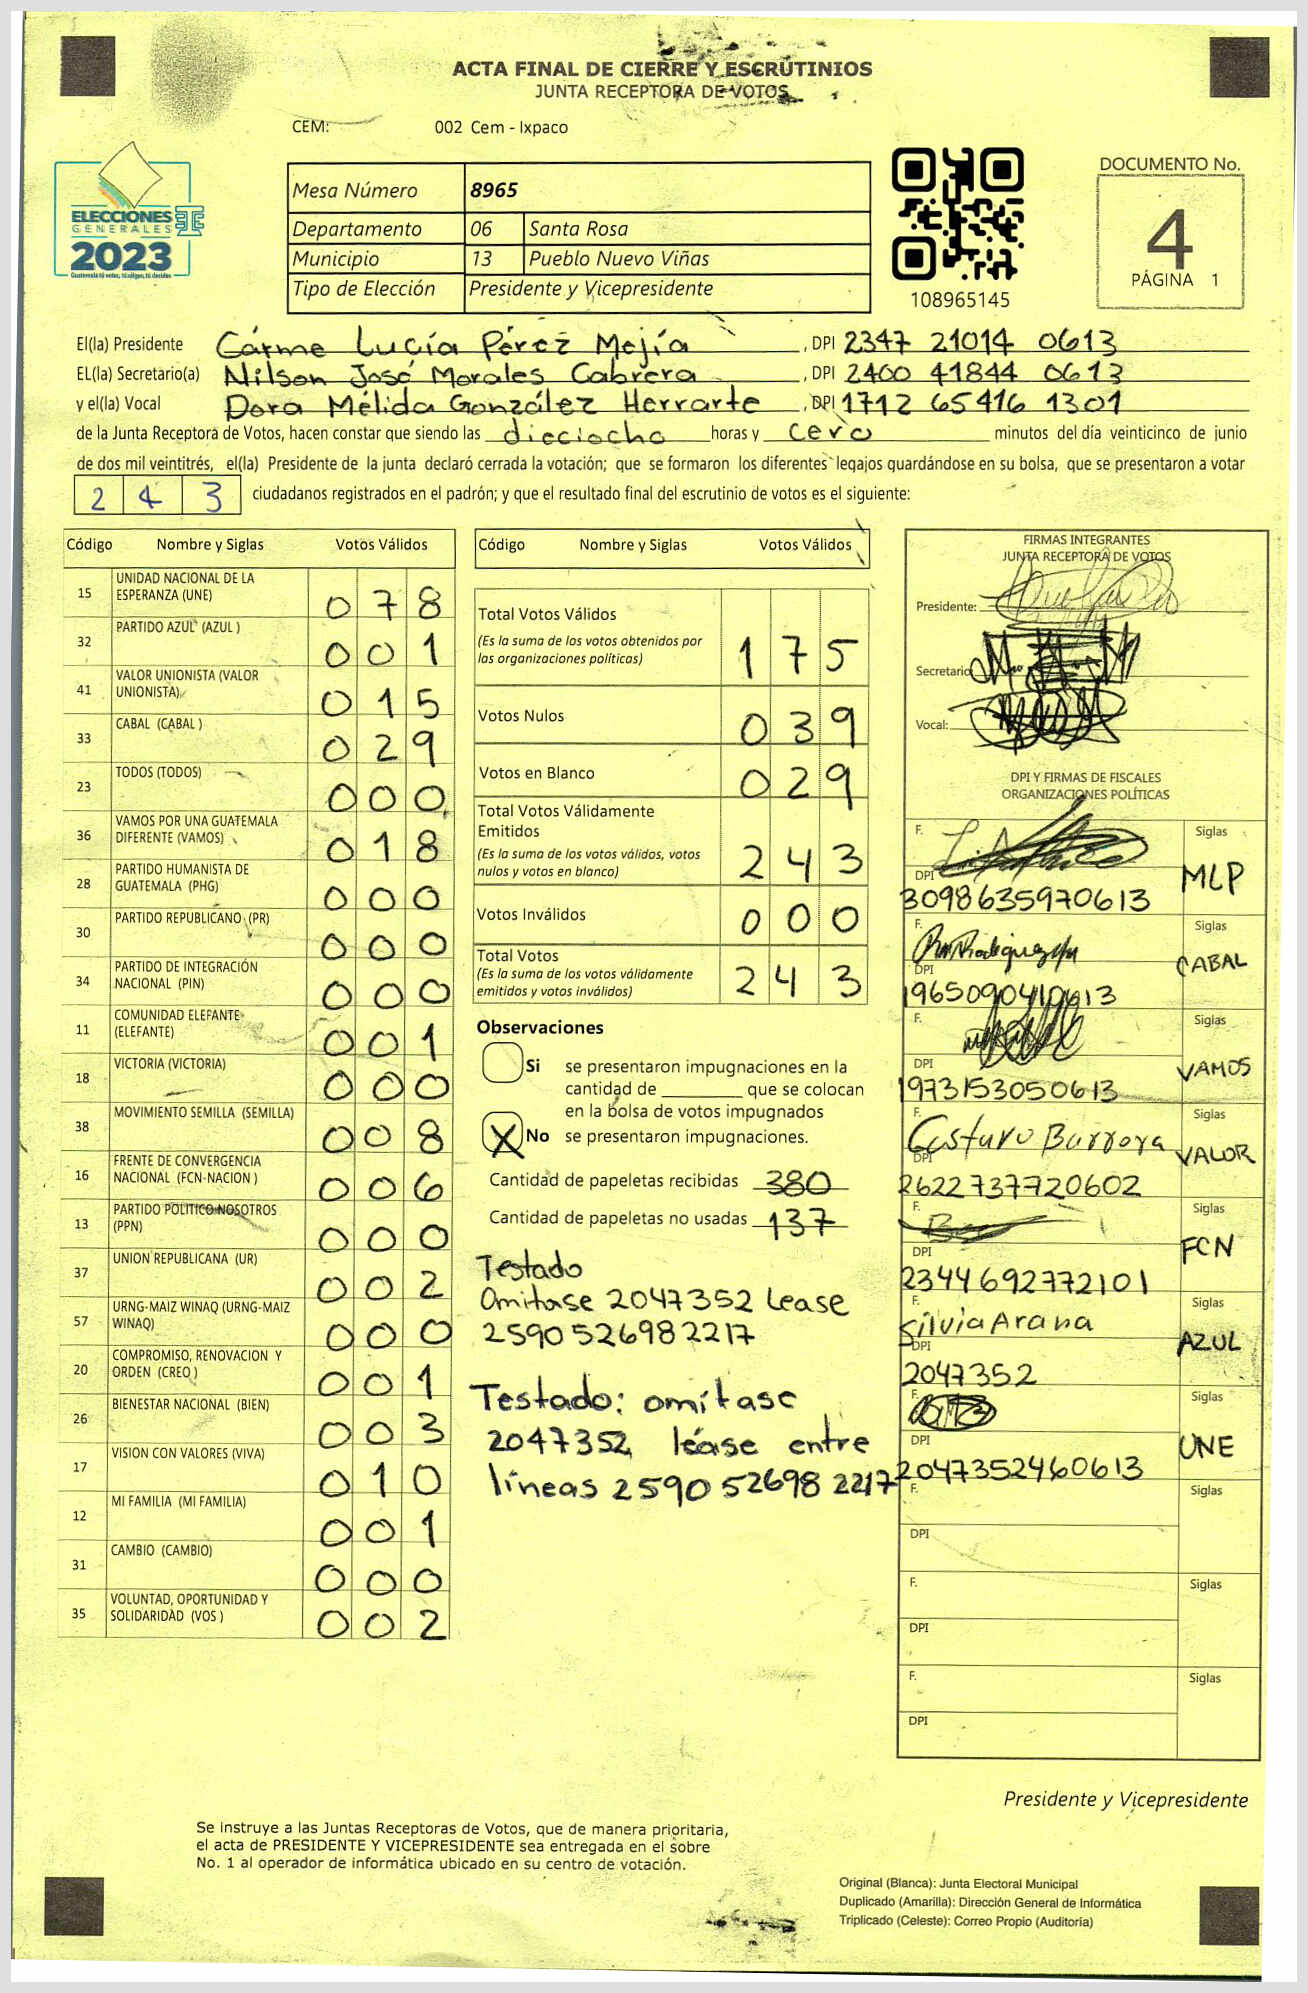 ACTA FINAL DE CIERRE Y ESCRUTINIOS
JUNTA RECEPTORA DE VOTOS
CEM: 002 Cem - Ixpaco
ELECCIONES
GENERALES
2023
Guatemala tú votas, tú eliges, tú decides
Mesa Número 8965
Departamento 06 Santa Rosa
Municipio 13 Pueblo Nuevo Viñas
Tipo de Elección Presidente y Vicepresidente
108965145
DOCUMENTO No.
4
PÁGINA 1
El(la) Presidente Cárme Lucía Pérez Mejía , DPI 2347 21014 0613
EL(la) Secretario(a) Nilson José Morales Cabrera , DPI 2400 41844 0613
y el(la) Vocal Dora Mélida González Herrarte , DPI 1712 65416 1301
de la Junta Receptora de Votos, hacen constar que siendo las dieciocho horas y cero minutos del día veinticinco de junio
de dos mil veintitrés, el(la) Presidente de la junta declaró cerrada la votación; que se formaron los diferentes legajos guardándose en su bolsa, que se presentaron a votar
2 4 3 ciudadanos registrados en el padrón; y que el resultado final del escrutinio de votos es el siguiente:
Código Nombre y Siglas Votos Válidos
15 UNIDAD NACIONAL DE LA ESPERANZA (UNE) 0 7 8
32 PARTIDO AZUL (AZUL ) 0 0 1
41 VALOR UNIONISTA (VALOR UNIONISTA) 0 1 5
33 CABAL (CABAL ) 0 2 9
23 TODOS (TODOS) 0 0 0
36 VAMOS POR UNA GUATEMALA DIFERENTE (VAMOS) 0 1 8
28 PARTIDO HUMANISTA DE GUATEMALA (PHG) 0 0 0
30 PARTIDO REPUBLICANO (PR) 0 0 0
34 PARTIDO DE INTEGRACIÓN NACIONAL (PIN) 0 0 0
11 COMUNIDAD ELEFANTE (ELEFANTE) 0 0 1
18 VICTORIA (VICTORIA) 0 0 0
38 MOVIMIENTO SEMILLA (SEMILLA) 0 0 8
16 FRENTE DE CONVERGENCIA NACIONAL (FCN-NACION ) 0 0 6
13 PARTIDO POLITICO NOSOTROS (PPN) 0 0 0
37 UNION REPUBLICANA (UR) 0 0 2
57 URNG-MAIZ WINAQ (URNG-MAIZ WINAQ) 0 0 0
20 COMPROMISO, RENOVACION Y ORDEN (CREO ) 0 0 1
26 BIENESTAR NACIONAL (BIEN) 0 0 3
17 VISION CON VALORES (VIVA) 0 1 0
12 MI FAMILIA (MI FAMILIA) 0 0 1
31 CAMBIO (CAMBIO) 0 0 0
35 VOLUNTAD, OPORTUNIDAD Y SOLIDARIDAD (VOS ) 0 0 2
Código Nombre y Siglas Votos Válidos
Total Votos Válidos
(Es la suma de los votos obtenidos por
las organizaciones políticas) 1 7 5
Votos Nulos 0 3 9
Votos en Blanco 0 2 9
Total Votos Válidamente
Emitidos
(Es la suma de los votos válidos, votos
nulos y votos en blanco) 2 4 3
Votos Inválidos 0 0 0
Total Votos
(Es la suma de los votos válidamente
emitidos y votos inválidos) 2 4 3
Observaciones
Si se presentaron impugnaciones en la
cantidad de ________ que se colocan
en la bolsa de votos impugnados
X No se presentaron impugnaciones.
Cantidad de papeletas recibidas 380
Cantidad de papeletas no usadas 137
Testado
Omitase 2047352 Lease
2590 52698 2217
Testado: omítase
2047352 léase entre
líneas 2590 52698 2217
FIRMAS INTEGRANTES
JUNTA RECEPTORA DE VOTOS
Presidente:
Secretario
Vocal:
DPI Y FIRMAS DE FISCALES
ORGANIZACIONES POLÍTICAS
F. Siglas
DPI MLP
3098635970613
F. Siglas
DPI CABAL
1965090410613
F. Siglas
DPI VAMOS
1973153050613
F. Siglas
Gustavo Barrera
DPI VALOR
2622737720602
F. Siglas
DPI FCN
2344692772101
F. Siglas
Silvia Arana
DPI AZUL
2047352
F. Siglas
DPI UNE
2047352460613
F. Siglas
DPI
F. Siglas
DPI
F. Siglas
DPI
Presidente y Vicepresidente
Se instruye a las Juntas Receptoras de Votos, que de manera prioritaria,
el acta de PRESIDENTE Y VICEPRESIDENTE sea entregada en el sobre
No. 1 al operador de informática ubicado en su centro de votación.
Original (Blanca): Junta Electoral Municipal
Duplicado (Amarilla): Dirección General de Informática
Triplicado (Celeste): Correo Propio (Auditoría)